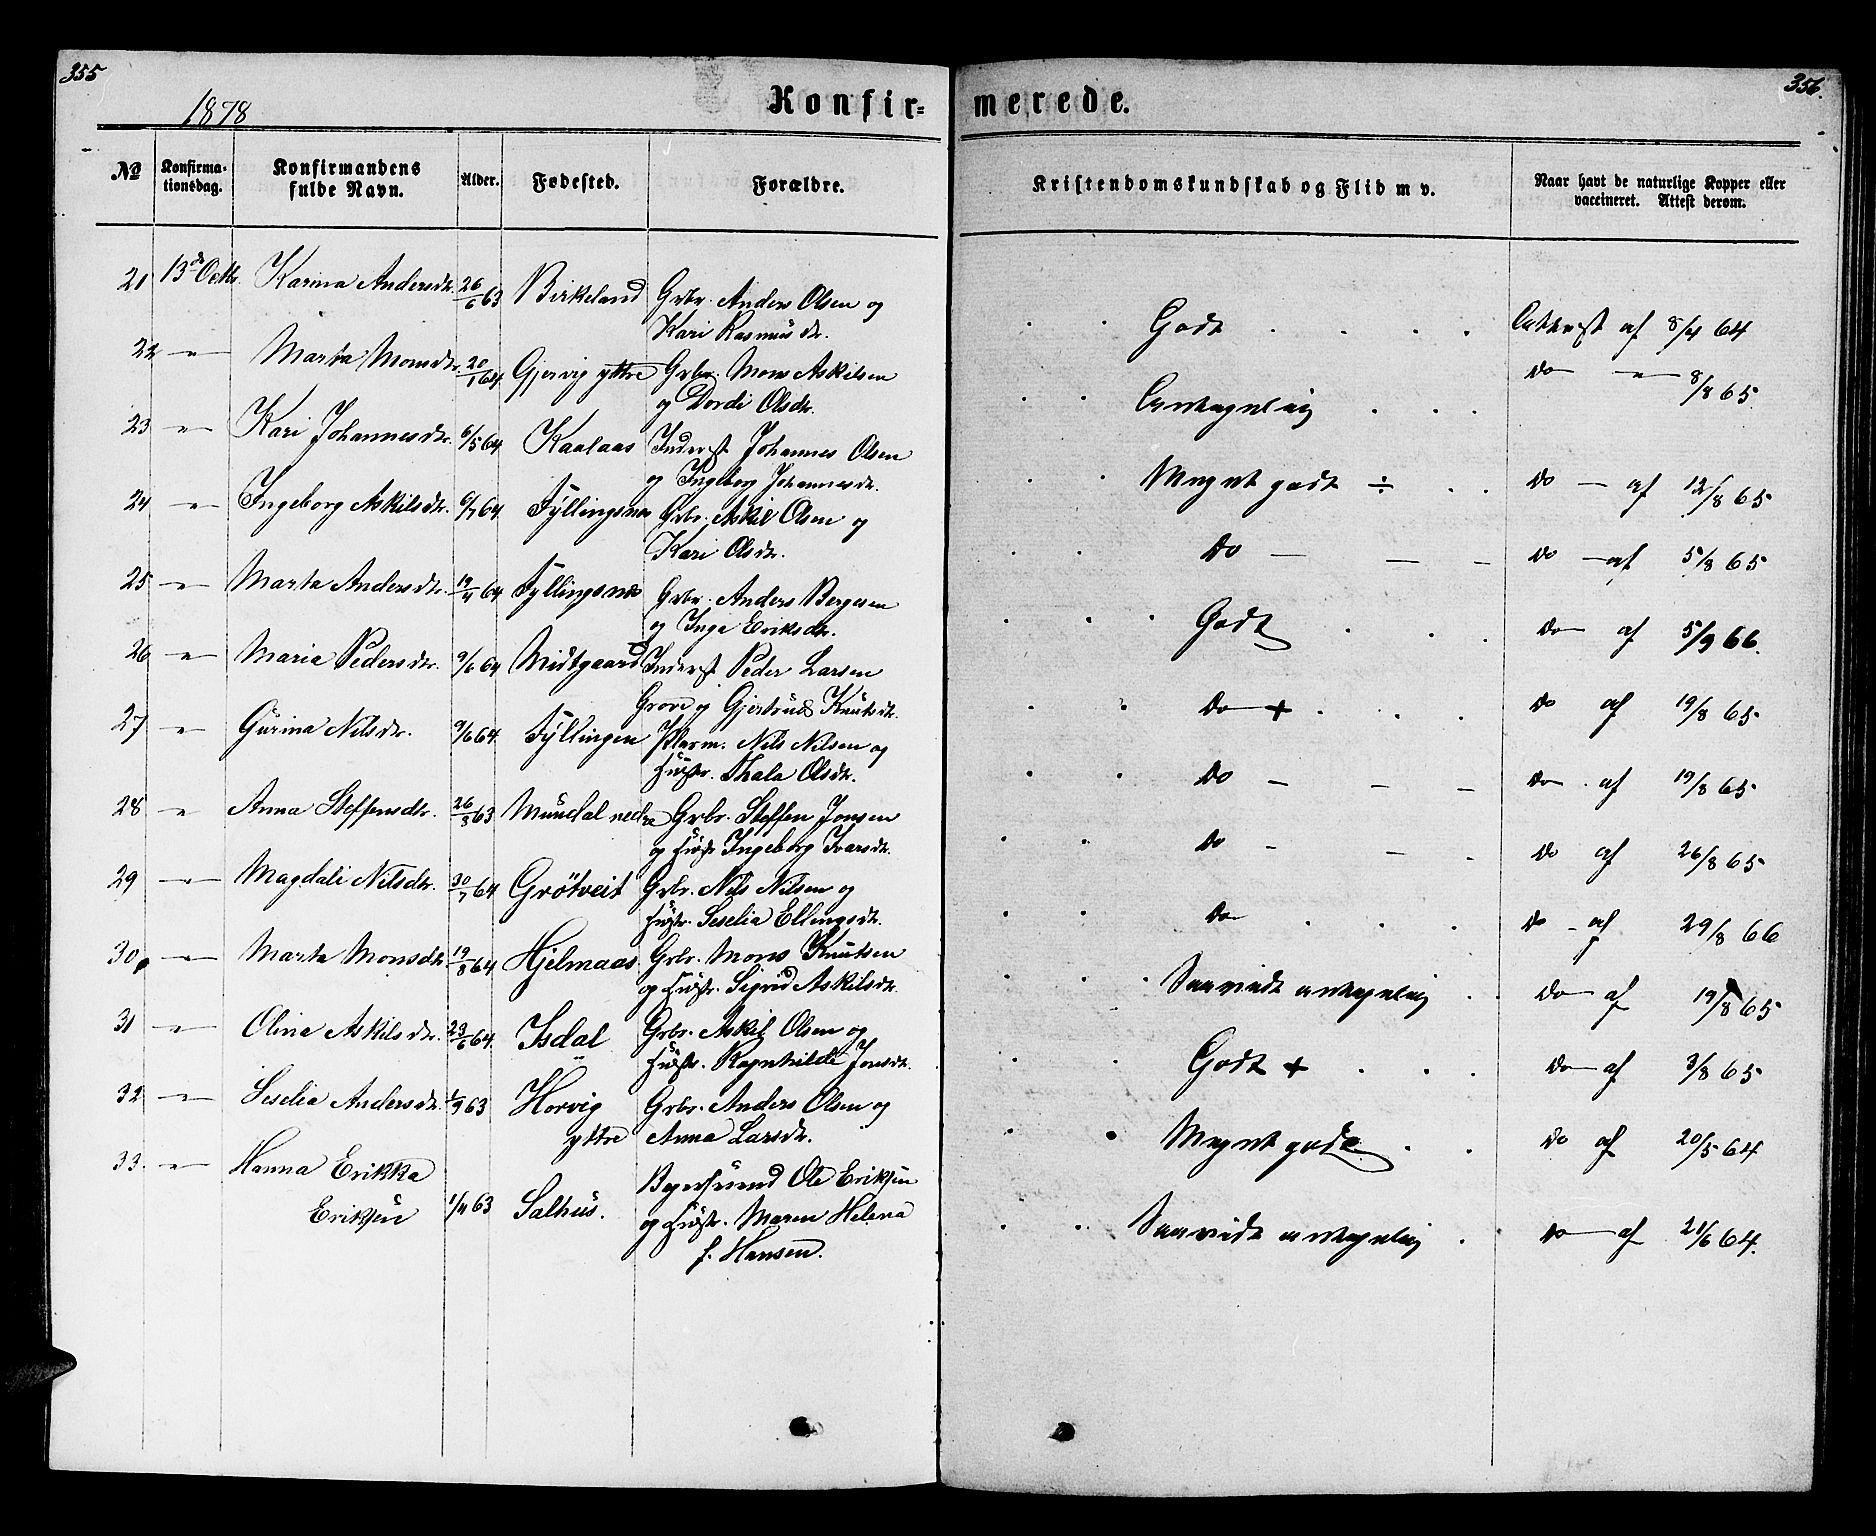 355
356.
1878
Konfir=
merede.
No
Konfirma-
tionsdag.
Konfirmandens
fulde Navn.
Alder.
Fødested.
Forældre.
Kristendomskundskab og Flid m v.
Naar havt de naturlige Kopper eller
vaccineret. Attest derom.
21 13de Octbr. Karina Andersdtr. 26/6 63 Birkeland Grbr. Anders Olsen og
Kari Rasmusdtr. Godt Attest af 8/4 64
22 —"— Marta Monsdtr. 20/1 64 Gjervig yttre Grbr. Mons Askilsen
og Dordi Olsdtr. Antagelig do —"— 8/8 65
23 —"— Kari Johannesdtr. 6/5 64 Kaalaas Inderst Johannes Olsen
og Ingeborg Johannesdtr. Meget godt ÷ do — af 12/8 65
24 —"— Ingeborg Askilsdtr. 6/7 64 Fyllingsnes Grbr. Askil Olsen og
Kari Olsdtr. do — do — af 5/8 65
25 —"— Marta Andersdtr. 19/4 64 Fyllingsnes Grbr. Anders Bergesen
og Inga Eriksdtr. Godt do — af 5/9 66.
26 —"— Maria Pedersdtr. 9/6 64 Midtgaard Inderst Peder Larsen
Grove og Gjertrud Knutsdtr. do + do af 19/8 65
27 —"— Gurina Nilsdtr. 9/6 64 Fyllingen Plasm. Nils Nilsen og
Hustr. Thala Olsdtr. do — do af 19/8 65
28 —"— Anna Steffensdtr. 26/8 63 Mundal nedre Grbr. Steffen Jonsen
og Hustr Ingeborg Ivarsdtr. do — do af 26/8 65
29 —"— Magdali Nilsdtr. 30/7 64 Grötveit Grbr. Nils Nilsen og
Hustr. Seselia Ellingsdtr. do do — af 29/8 66
30 —"— Marta Monsdtr. 19/8 64 Hjelmaas Grbr. Mons Knutsen
og Hustr. Sigrid Askilsdtr. Saavidt antagelig do — af 19/8 65
31 —"— Olina Askilsdtr. 23/6 64. Isdal Grbr. Askil Olsen og
Hustr. Ragnhilde Jonsdtr. Godt + do — af 3/8 65
32 —"— Seselia Andersdtr. 1/9 63 Horvig Grbr. Anders Olsen og
yttre Anna Larsdtr. Meget godt. do af 20/5 64
33. —"— Hanna Erikka
Eriksen 1/4 63 Salhus. Ole Eriksen
og Hustr. Maren Helena
f. Hansen. Saavidt antagelig do — af 21/6 64.